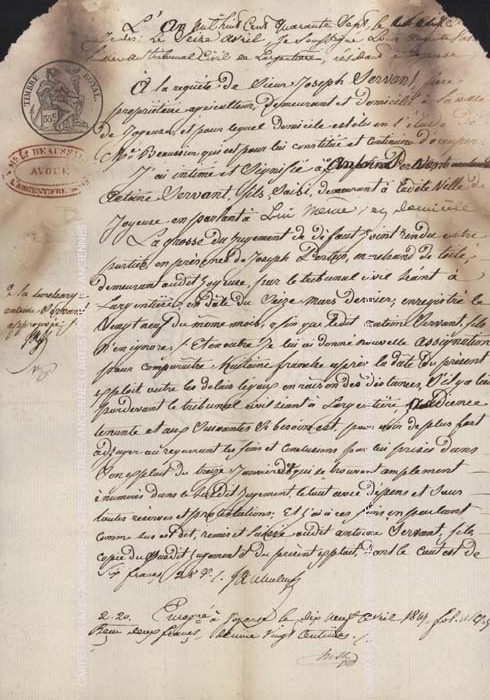 L'An mil huit Cent Quarante Sept, et
le Seize avril, je soussigné
huissier au tribunal Civil de Largentière, résidant à
TIMBRE ROYAL
35c
À la requête de Sieur Joseph Servant père
propriétaire agriculteur, demeurant et domicilié à la ville
de Joyeuse, et pour lequel domicile est élu en l'étude de
Me Beaussier qui est pour lui constitué et continuera d'occuper
BEAUSS
AVOUE
L'ARGENTIERE
J'ai intimé et signifié à
Antoine Servant fils, Saisi, demeurant à ladite Ville de
Joyeuse en parlant à Lui même, en domicile
La grosse du Jugement de défaut joint rendu entre
parties, en présence de Joseph marchand de toile,
demeurant audit Joyeuse, par le tribunal civil séant à
Largentière, en date du Seize Mars dernier, enregistré le
Vingt neuf du même mois, afin que ledit antoine Servant, fils
N'en ignore; Et en outre Je lui ai donné nouvelle assignation
pour comparaître à huitaine franche après la date du présent
exploit outre les délais légaux en raison des distances, S'il y a lieu
pardevant le tribunal civil séant à Largentière, audience
tenante et aux Suivantes si besoin est, pour voir de plus fort
adjuger au requérant les fins et conclusions par lui prises dans
Son exploit du treize Janvier qui se trouvent amplement
énumérés dans le Susdit Jugement, le tout avec dépens et sous
toutes réserves et protestations; Et j'ai à ces fins en parlant
comme sus est dit, remis et laissé audit antoine Servant, fils
copie du Susdit Jugement et du présent exploit, dont le coût est de
Six francs
approuvé
2-20. Enregé à Joyeuse le dix neuf avril 1847, fol.
Reçu deux francs, décime vingt centimes
CARTES POSTALES ANCIENNES